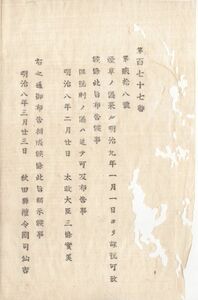 第百七十七番
第貳拾八號
煙草ノ儀來ル明治九年一月一日ヨリ
候條此旨布告候事
但税則ノ儀ハ追テ可及布告事
明治八年二月廿日　太政大臣三條實美
右之通御布告相成候條此旨布示候事
明治八年三月廿三日　秋田縣權令國司仙吉